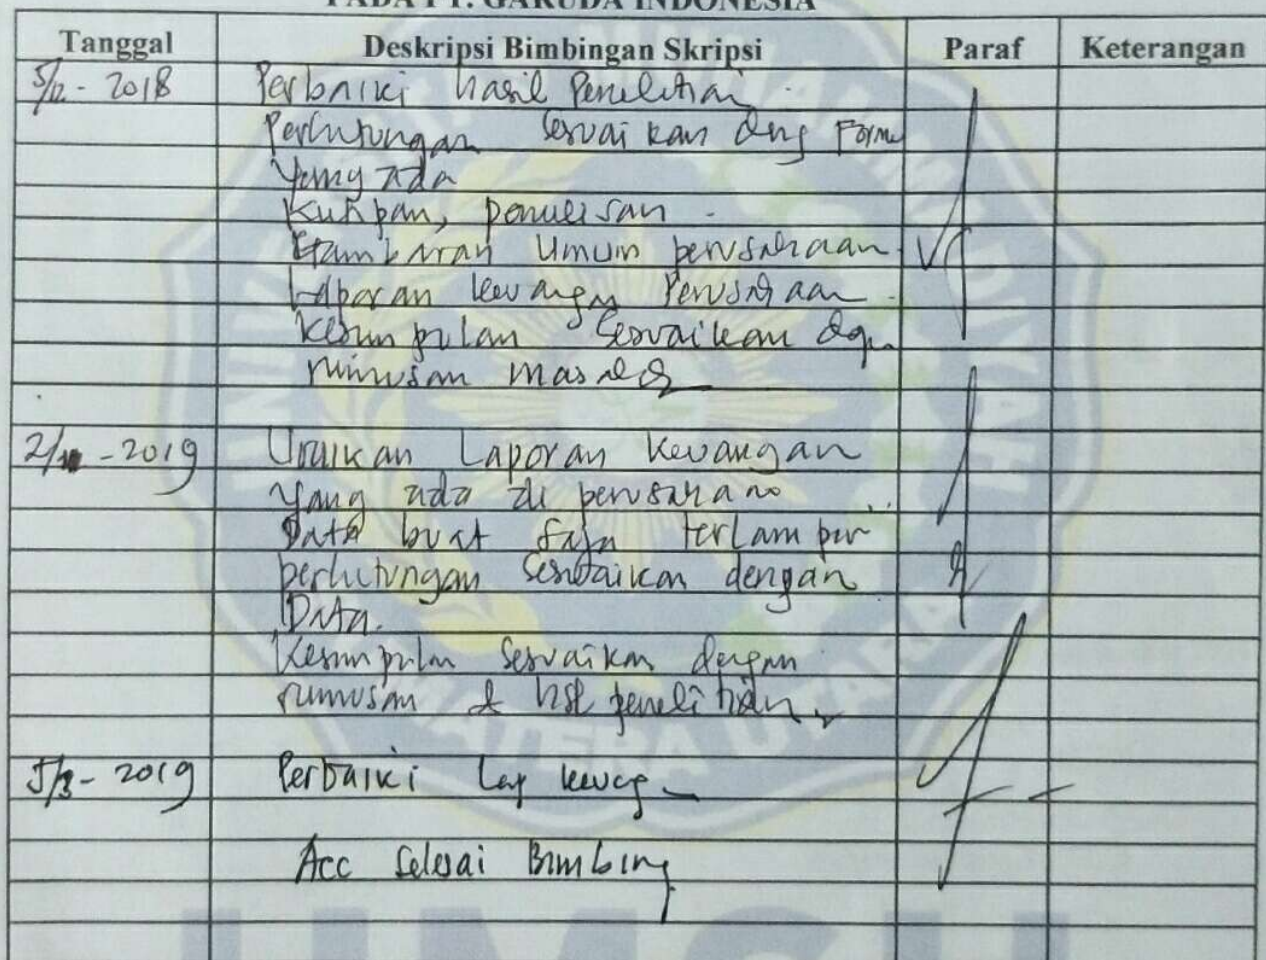 PADA PT. GARUDA INDONESIA
Tanggal Deskripsi Bimbingan Skripsi Paraf Keterangan
5/12 - 2018 Perbaiki hasil Penelitian
Perhitungan Sesuaikan dng
yang ada
Kutipan, penulisan
Gambaran Umum perusahaan
Laporan keuangan Perusahaan
Kesimpulan Sesuaikan dgn
rumusan masalah
2/ - 2019 Uraikan Laporan Keuangan
yang ada di perusahaan
Data buat saja terlampir
perhitungan Sesuaikan dengan
Data.
Kesimpulan Sesuaikan dengan
rumusan & hsl penelitian
5/3 - 2019 Perbaiki Lap keuag
Acc Selesai Bimbing
SUMATERA UTARA
UMSU